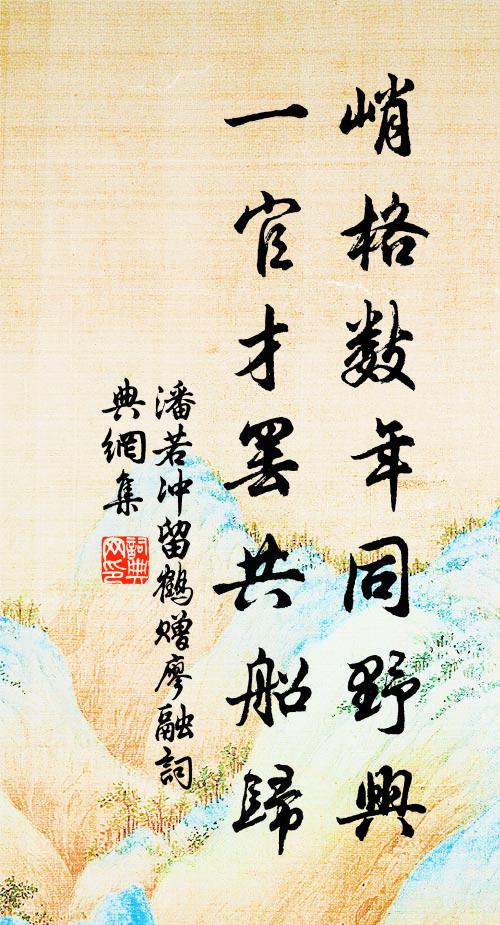 峭格數年同野興
一官才罷共船歸
潘若冲留鶴贈廖融詞
典網集
詞典网印